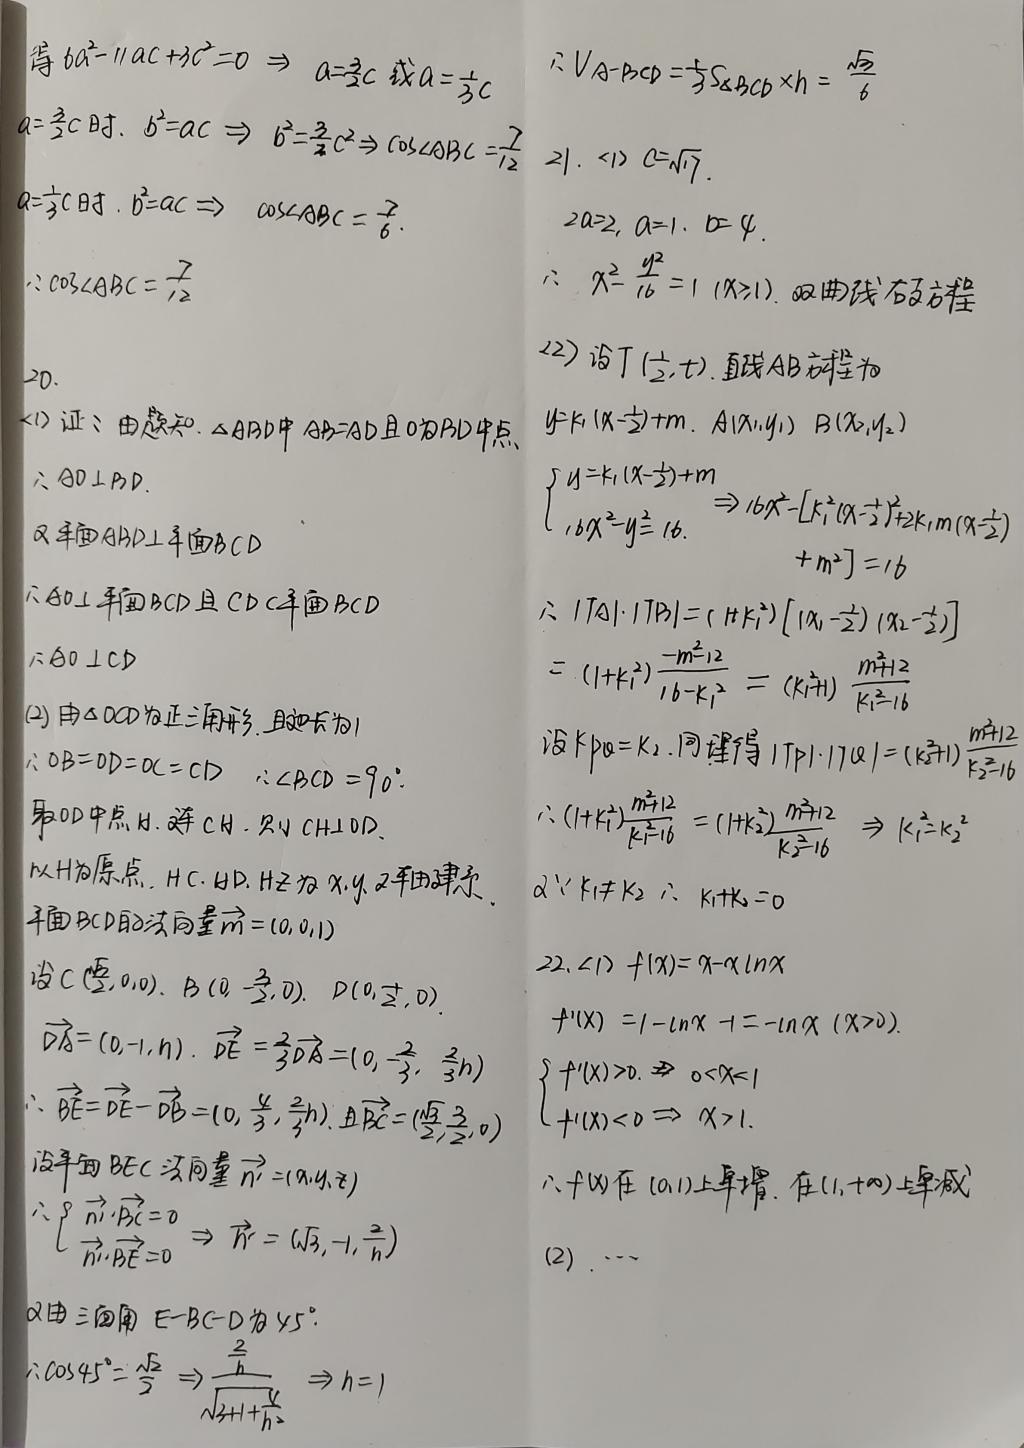 得 6a²-11ac+3c²=0 ⇒ a=3/2c 或 a=1/3c
a=3/2c时. b²=ac ⇒ b²=3/2c² ⇒ cos∠ABC=7/12
a=1/3c时. b²=ac ⇒ cos∠ABC=7/6.
∴cos∠ABC=7/12
20.
<1> 证: 由题知. △ABD中 AB=AD且O为BD中点.
∴AO⊥BD.
又平面ABD⊥平面BCD
∴AO⊥平面BCD且CD⊂平面BCD
∴AO⊥CD
(2) 由△OCD为正三角形. 且边长为1
∴OB=OD=OC=CD ∴∠BCD=90°.
取OD中点H. 连CH. 则CH⊥OD.
以H为原点. HC. HD. HZ为x.y.z轴建系.
平面BCD的法向量m⃗=(0,0,1)
设C(√3/2,0,0). B(0,-3/2,0). D(0,1/2,0).
DA⃗=(0,-1,h). DE⃗=2/3DA⃗=(0,-2/3,2/3h)
∴BE⃗=DE⃗-DB⃗=(0,4/3,2/3h). 且BC⃗=(√3/2,3/2,0)
设平面BEC法向量n⃗=(x,y,z)
∴{n⃗·BC⃗=0
n⃗·BE⃗=0 ⇒ n⃗=(√3,-1,2/h)
又由二面角 E-BC-D为45°.
∴cos45°=√2/2 ⇒ (2/h)/√(3+1+4/h²) ⇒ h=1
∴V A-BCD=1/3S△BCD×h=√3/6
21. <1> C=√17.
2a=2, a=1. b=4.
∴ x²-y²/16=1 (x≥1). 双曲线右支方程
<2> 设T(1/2,t). 直线AB方程为
y=k₁(x-1/2)+m. A(x₁,y₁) B(x₂,y₂)
{y=k₁(x-1/2)+m
16x²-y²=16. ⇒ 16x²-[k₁²(x-1/2)²+2k₁m(x-1/2)
+m²]=16
∴ |TA|·|TB|=(1+k₁²)[(x₁-1/2)(x₂-1/2)]
=(1+k₁²)(-m²-12)/(16-k₁²)=(k₁²+1)(m²+12)/(k₁²-16)
设kPQ=k₂. 同理得|TP|·|TQ|=(k₂²+1)(m²+12)/(k₂²-16)
∴(1+k₁²)(m²+12)/(k₁²-16)=(1+k₂²)(m²+12)/(k₂²-16) ⇒ k₁²=k₂²
又∵k₁≠k₂ ∴ k₁+k₂=0
22.<1> f(x)=x-xlnx
f'(x)=1-lnx-1=-lnx (x>0).
{f'(x)>0. ⇒ 0<x<1
f'(x)<0 ⇒ x>1.
∴f(x)在(0,1)上单增. 在(1,+∞)上单减
(2). …